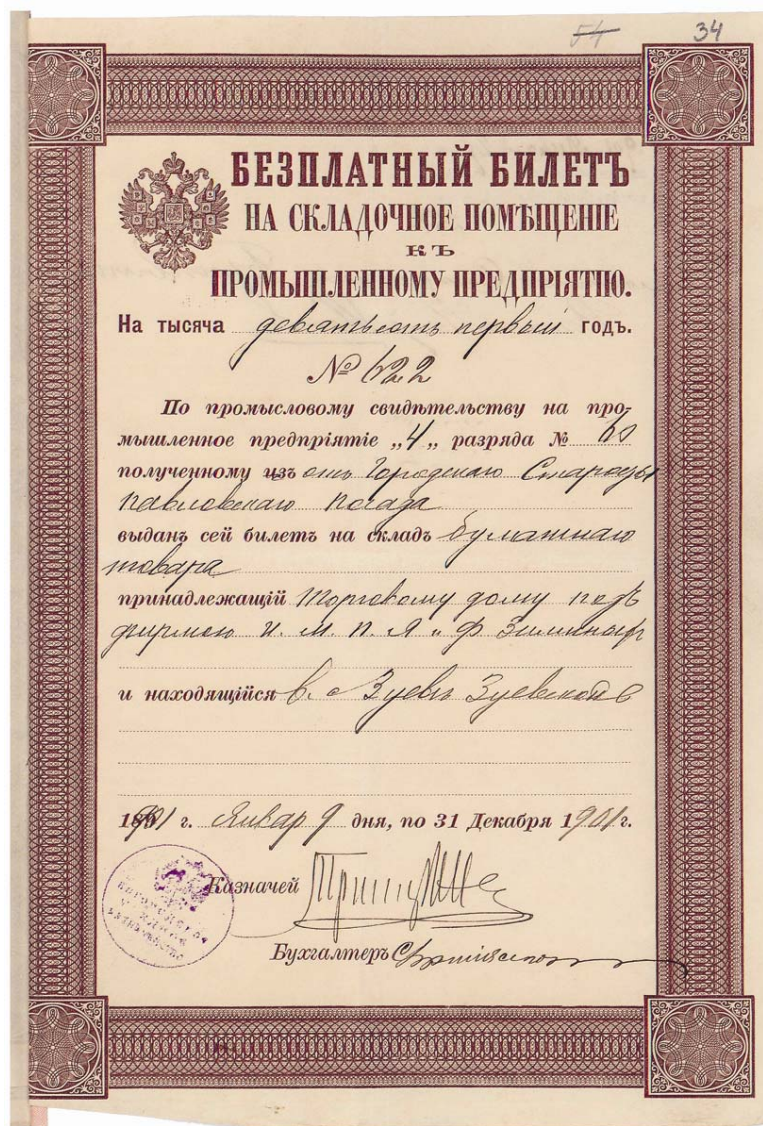 54 34
БЕЗПЛАТНЫЙ БИЛЕТЪ
НА СКЛАДОЧНОЕ ПОМѢЩЕНІЕ
КЪ
ПРОМЫШЛЕННОМУ ПРЕДПРІЯТІЮ.
На тысяча девятьсотъ первый годъ.
№ 622
По промысловому свидѣтельству на про-
мышленное предпріятіе „4„ разряда № 60
полученному изъ отъ Городскаго Старосты
Павловскаго Посада
выданъ сей билетъ на складъ бумажнаго
товара
принадлежащій Торговому дому подъ
фирмою И. М. П. Я. и Ф Зимины
и находящійся в. с Зуевѣ Зуевской в
1901 г. Январ 9 дня, по 31 Декабря 1901 г.
Казначей
Бухгалтеръ